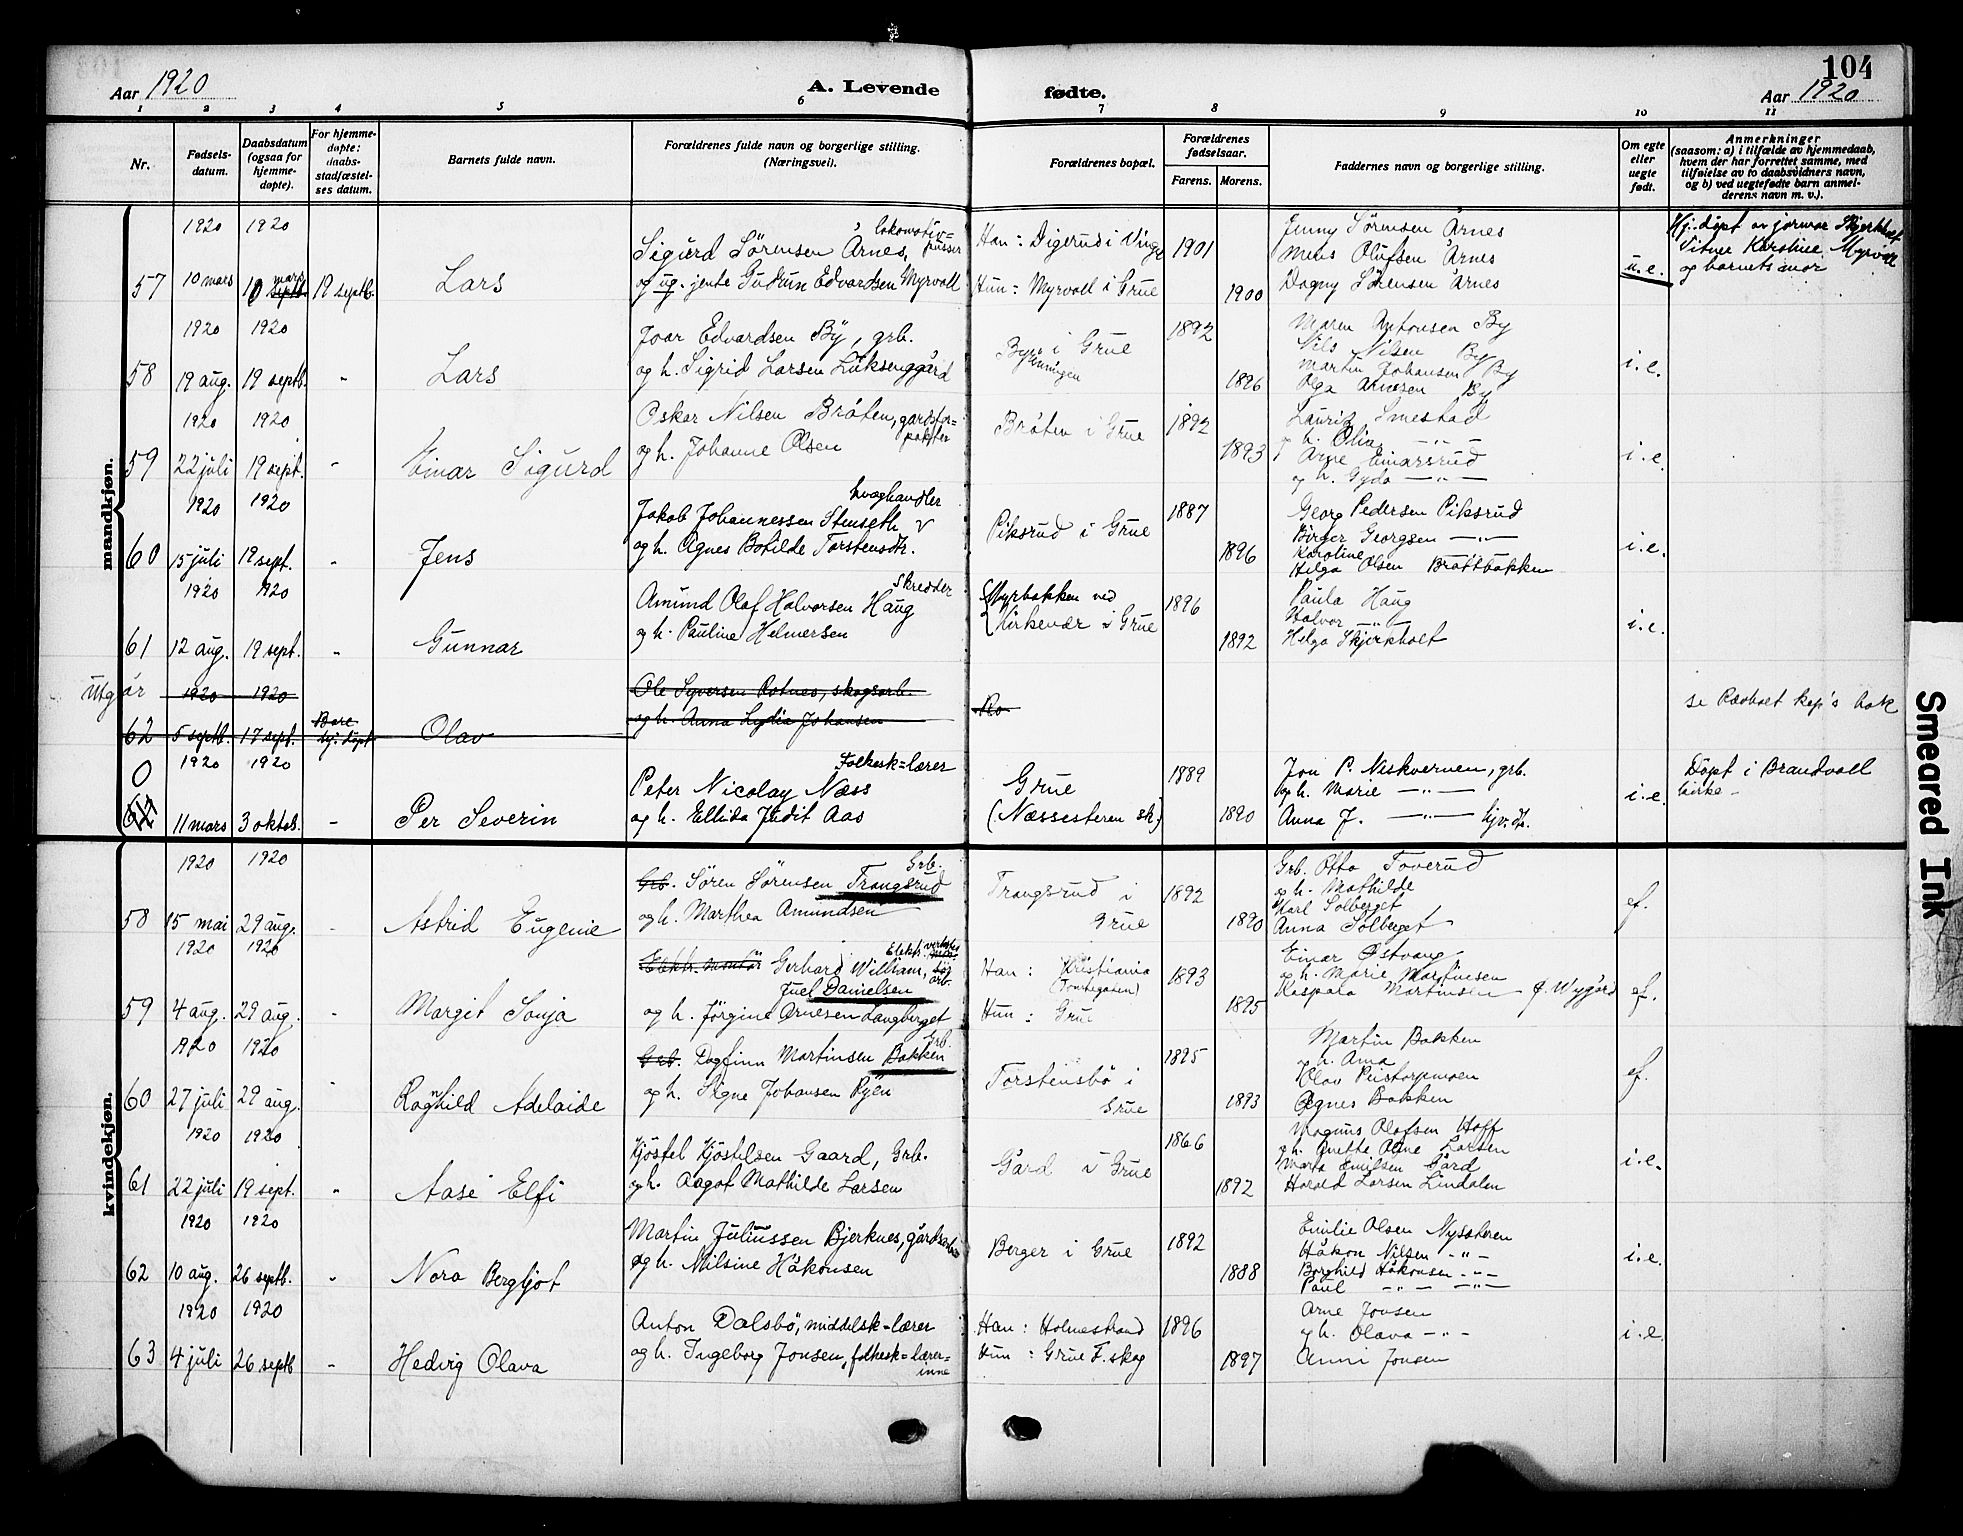 104
Aar 1920
A. Levende fødte.
Aar 1920
1 2 3 4 5 6 7 8 9 10 11
Nr.
Fødsels-
datum.
Daabsdatum
(ogsaa for
hjemme-
døpte).
For hjemme-
døpte:
daabs-
stadfæstel-
ses datum.
Barnets fulde navn.
Forældrenes fulde navn og borgerlige stilling.
(Næringsvei).
Forældrenes bopæl.
Forældrenes
fødselsaar.
Farens. Morens.
Faddernes navn og borgerlige stilling.
Om egte
eller
uegte
født.
Anmerkninger
(saasom: a) i tilfælde av hjemmedaab,
hvem der har forrettet samme, med
tilføielse av to daabsvidners navn,
og b) ved uegtefødte barn anmel-
derens navn m. v.).
mandkjøn.
1920 1920
57 10 mars 10 mars septb. 19 septb. Lars
lokomotiv-
pusser
Sigurd Sørensen Årnes,
og ug. jente Gudrun Edvardsen Myrvoll
Han: Digerud i Vinge 1901
Hun: Myrvoll i Grue 1900
Jenny Sørensen Årnes
Mens Olufsen Årnes
Dagny Sørensen Årnes
u.e.
Hj. døpt av jormor Skjerholt
Vitner Karoline Myrvoll
og barnets mor
1920 1920
58 19 aug. 19 septb. " Lars
Joar Edvardsen By, grb.
og h. Sigrid Larsen Luksenggård
i Grue
1892
1896
Maren Antonsen By
Nils Nilsen By
Martin Johansen By
Olga Arnesen By
i.e.
1920 1920
59 22 juli 19 sept. " Einar Sigurd
Oskar Nilsen Bråten, gardsfor-
pakter
og h. Johanne Olsen
Bråten i Grue 1892
1893
Lauritz Smestad
og h. Olin - " -
Arne Einarsrud
og h. Gyda - " -
i.e.
1920 1920
60 15 juli 19 sept. " Jens
kvaghandler
Jakob Johannessen Stenseth
og h. Agnes Botilde Torstensdtr.
Piksrud i Grue 1887
1896
Georg Pedersen Piksrud
Birger Georgsen - " -
Karoline
Helga Olsen Bråttbakken
i.e.
1920 1920
61 12 aug. 19 sept. " Gunnar
Skredder
Amund Olaf Halvorsen Haug
og h. Pauline Helmersen
Myrbakken ved
Kirkevær i Grue
1896
1892
Paula Haug
Halvor - " -
Helga Skjerpholt
i.e.
Utgår 1920 1920
62 5 septb. 17 sept. Bare hj. døpt Olav
Ole Syversen Rotnes, skogsarb.
og h. Anna Lydia Johansen
Ro
se Rævholt kap's bok
1920 1920
0
11 mars 3 oktob. - Per Severin
Folkesk=lærer
Peter Nicolay Næss
og h. Ellida Judit Aas
Grue
(Næssesteren sk.)
1889
1890
Jon P. Neskvernen, grb.
og h. Marie - " -
Anna J. - " - hjv. dtr.
i.e.
Døpt i Brandvoll
kirke -
kvindekjøn.
1920 1920
58 15 mai 29 aug. - Astrid Eugenie
Grb. Søren Sørensen Trangsrud Grb.
og h. Marthea Amundsen
Trangsrud i
Grue
1892
1890
Grb. Otto Toverud
og h. Mathilde
Karl Solberget
Anna Solberget
ef.
1920 1920
59 4 aug. 29 aug. - Margit Sonja
Elektr. montør Gerhard William,
Juel Danielsen
og h. Jørgine Arnesen Langberget
Han: Kristiania
Hun: Grue
1893
1895
Einar Østvang
og h. Marie Martinsen
Kaspara Martinsen f. Wygård
ef.
1920 1920
60 27 juli 29 aug. " Ragnhild Adelaide
Grb. Dagfinn Martinsen Bakken Grb.
og h. Signe Johansen Ryen
Torstensbø i
Grue
1895
1893
Martin Bakken
og h. Anna
Olav Peistorpmoen
Agnes Bakken
ef.
1920 1920
61 22 juli 19 sept. " Aase Elfi
Kjøstel Kjøstelsen Gaard, Grb.
og h. Aagot Mathilde Larsen
Gård i Grue 1866
1892
Magnus Olafsen Hoff
og h. Anette Aane Larsen
Marta Emilsen Gård
Harald Larsen Lindalen
i.e.
1920 1920
62 10 aug. 26 septb. " Nora Bergljot
Martin Juliussen Bjerknes, gårdsarb
og h. Nilsine Håkonsen
Berger i Grue 1892
1888
Emilie Olsen Nysæteren
Håkon Nilsen - " -
Borghild Håkonsen - " -
Paul - " - - " -
i.e.
1920 1920
63 4 juli 26 septb - Hedvig Olava
Anton Dalsbø, middelsk=lærer
og h. Ingeborg Jonsen, folkesk=lærer=
inne
Han: Holmestrand 1896
Hun: Grue F. skog 1897
Arne Jonsen
og h. Olava - " -
Anni Jonsen
i.e.
Smeared Ink